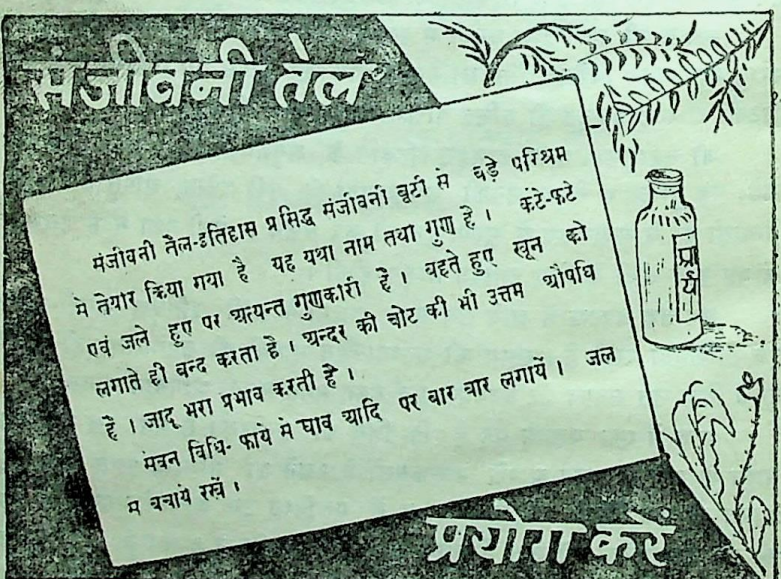 संजीवनी तेल
संजीवनी तैल-इतिहास प्रसिद्ध संजीवनी बूटी से बड़े परिश्रम
से तैयार किया गया है यह यथा नाम तथा गुण है । कटे-फटे
एवं जले हुए पर अत्यन्त गुणकारी है । बहते हुए खून को
लगाते ही बन्द करता है । अन्दर की चोट की भी उत्तम औषधि
है । जादू भरा प्रभाव करती है ।
सेवन विधि- फाये से घाव आदि पर बार बार लगायें । जल
से बचाये रखें ।
प्रयोग करें